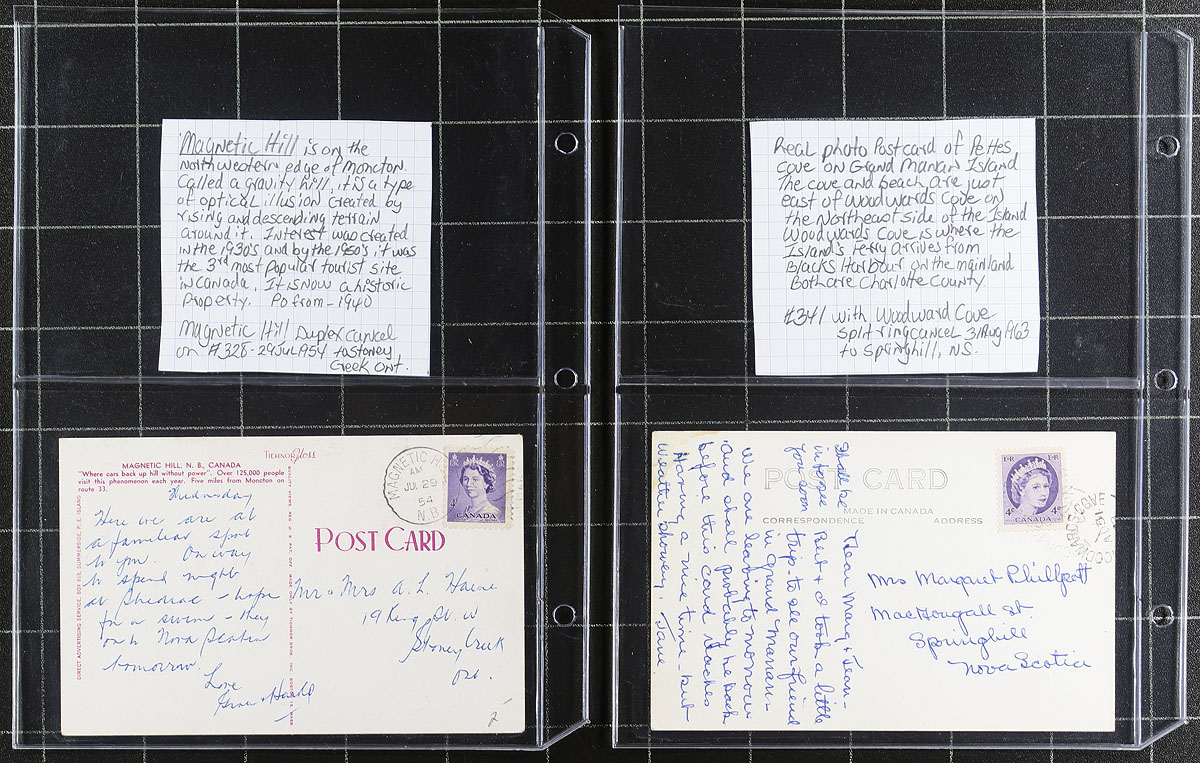 Magnetic Hill is on the
northwestern edge of Moncton.
Called a gravity hill, it is a type
of optical illusion created by
rising and descending terrain
around it. Interest was created
in the 1930's and by the 1950's it was
the 3rd most popular tourist site
in Canada. It is now a historic
Property. Po from - 1940
Magnetic Hill Duplex cancel
on #328 - 29 Jul 1954 to Stoney
Creek Ont.
Real photo Postcard of Pettes
cove on Grand Manan Island
The cove and beach are just
east of Woodwards Cove on
the Northeast side of the Island
Woodwards Cove is where the
Island's ferry arrives from
Blacks Harbour on the mainland
Both are Charlotte County.
#341 with Woodward Cove
split ring cancel 31 Aug 1963
to Springhill, NS.
MAGNETIC HILL, N. B., CANADA
"Where cars back up hill without power". Over 125,000 people
visit this phenomenon each year. Five miles from Moncton on
route 33.
TICHNOR gloss
DIRECT ADVERTISING SERVICE, BOX 918, SUMMERSIDE, P. E. ISLAND
POST CARD
MAGNETIC
AM
JUL 29
54
N.B.
4¢
CANADA
Here we are at
a familiar spot
to you. On way
to spend night
at Hope
for a swim they
tomorrow
Love
Mr & Mrs A. L.
19 King St. W
Stoney Creek
Ont.
2-
POST CARD
MADE IN CANADA
CORRESPONDENCE
ADDRESS
E II R
E II R
4¢
CANADA
4¢
Dear Marg & Jean -
Bert & I took a little
trip to see our friend
in Grand Manan -
We are leaving tomorrow
and shall probably be back
before this card reaches
you. Having a nice time - but
weather showery. Jane
Shall be
in Hope
Mrs Margaret Phillpott
MacDougall St
Springhill
Nova Scotia